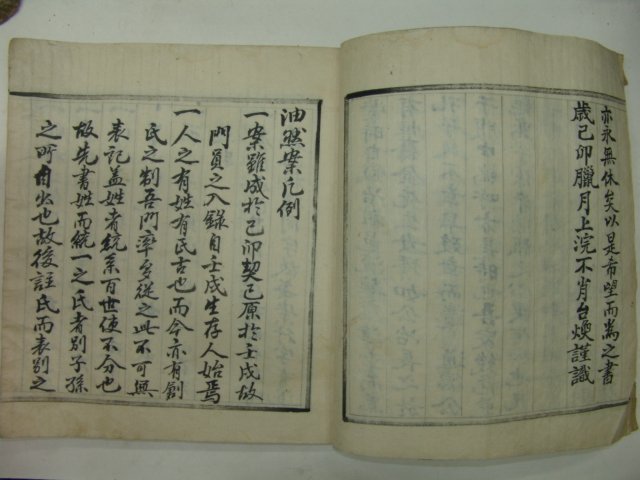 亦永無休矣以是希望而爲之書
歲己卯臘月上浣不肖台煥謹識
油然案凡例
一案雖成於己卯契已原於壬戌故
門員之入錄自壬戌生存人始焉
一人之有姓有氏古也而今亦有創
氏之制吾門率多從之此不可無
表記盖姓者統系百世使不分也
故先書姓而統一之氏者別子孫
之所自出也故後註氏而表別之